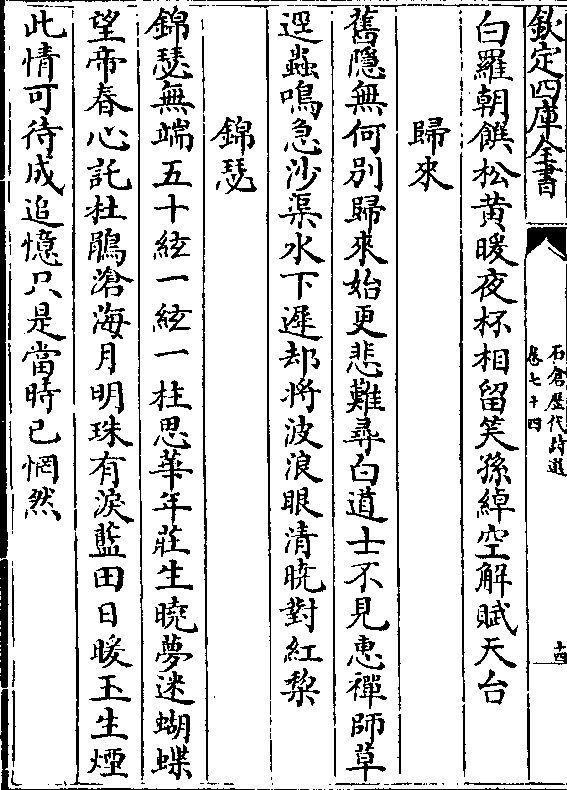 欽定四庫全書
石倉歷代詩選
卷七十四
十四
白羅朝饌松黃暖夜杯相留笑孫綽空解賦天台
歸來
舊隱無何別歸來始更悲難尋白道士不見惠禪師草
逕蟲鳴急沙渠水下遲却將波浪眼清曉對紅梨
錦瑟
錦瑟無端五十絃一絃一柱思華年莊生曉夢迷蝴蝶
望帝春心託杜鵑滄海月明珠有淚藍田日暖玉生煙
此情可待成追憶只是當時已惘然